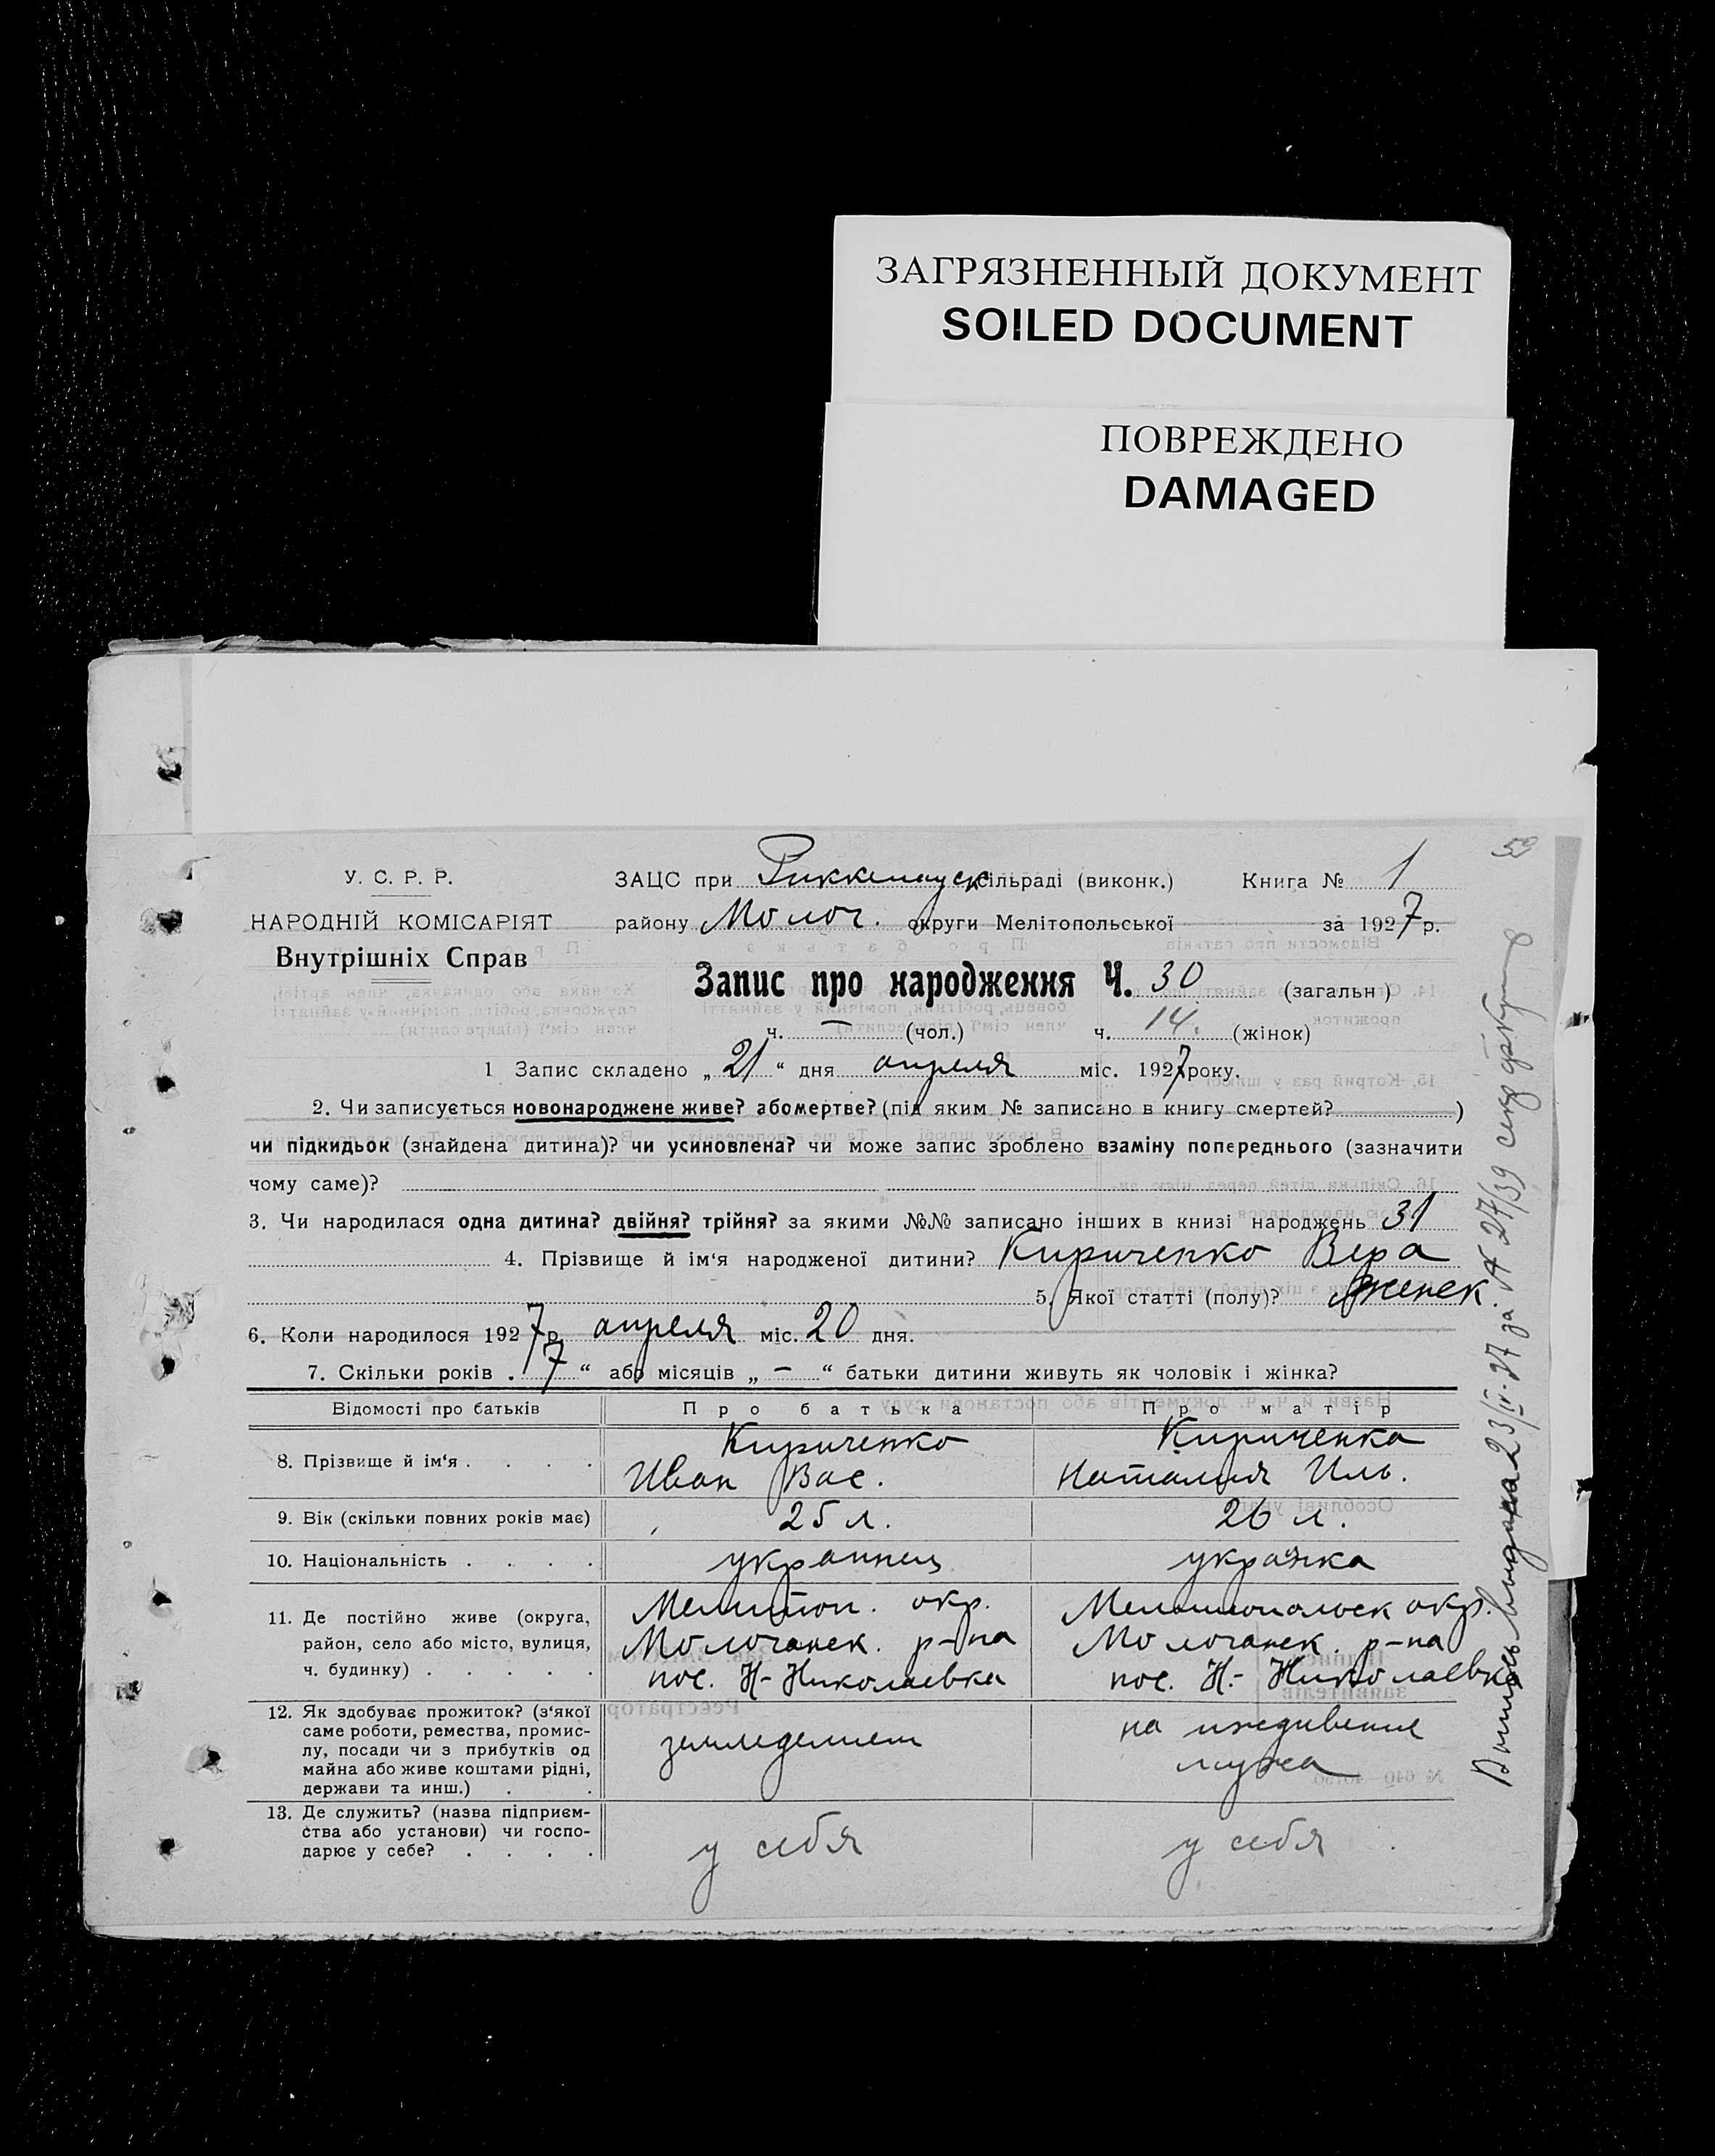 ЗАГРЯЗНЕННЫЙ ДОКУМЕНТ
SOILED DOCUMENT
ПОВРЕЖДЕНО
DAMAGED
59
У. С. Р. Р.
НАРОДНІЙ КОМІСАРІЯТ
Внутрішніх Справ
ЗАЦС при Риккенауск сільраді (виконк.) Книга № 1
району Молоч. округи Мелітопольської за 1927 р.
Запис про народження Ч. 30 (загальн)
ч. — (чол.) ч. 14. (жінок)
1 Запис складено „21“ дня апреля міс. 1927 року.
2. Чи записується новонароджене живе? або мертве? (під яким № записано в книгу смертей? )
чи підкидьок (знайдена дитина)? чи усиновлена? чи може запис зроблено взаміну попереднього (зазначити
чому саме)?
3. Чи народилася одна дитина? двійня? трійня? за якими №№ записано інших в книзі народжень 31
4. Прізвище й ім‘я народженої дитини? Кириченко Вера
5. Якої статті (полу)? женск
6. Коли народилося 1927 р. апреля міс. 20 дня.
7. Скільки років . 7 “ або місяців „ — “ батьки дитини живуть як чоловік і жінка?
Відомості про батьків Про батька Про матір
8. Прізвище й ім‘я . . . . Кириченко Иван Вас. Кириченка Наталия Иль.
9. Вік (скільки повних років має) 25 л. 26 л.
10. Національність . . . . украинец украінка
11. Де постійно живе (округа, Мелитоп. окр. Мелитопольск окр.
район, село або місто, вулиця, Молочанск. р-на Молочанск. р-на
ч. будинку) . . . . . пос. Н-Николаевка пос. Н.-Николаевка
12. Як здобуває прожиток? (з‘якої
саме роботи, ремества, промис-
лу, посади чи з прибутків од
майна або живе коштами рідні,
держави та инш.) . .
земледелием
на иждивение
мужа
13. Де служить? (назва підприєм-
ства або установи) чи госпо-
дарює у себе? . . . .
у себя у себя
Выпись выдана 23/IV-27 за № 27/39 секр